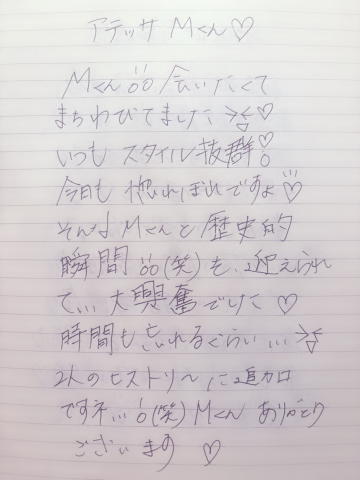 アテッサ Mくん♡
Mくん!!! 会いたくて
まちわびてました><♡
いつも スタイル抜群!
今日も 惚れぼれですよ♡
そんなMくんと歴史的
瞬間(笑)も、迎えられ
て... 大興奮でした♡
時間も忘れるぐらい...><
2人のヒストリーに追加
ですネ...(笑) Mくん ありがとう
ございます ♡